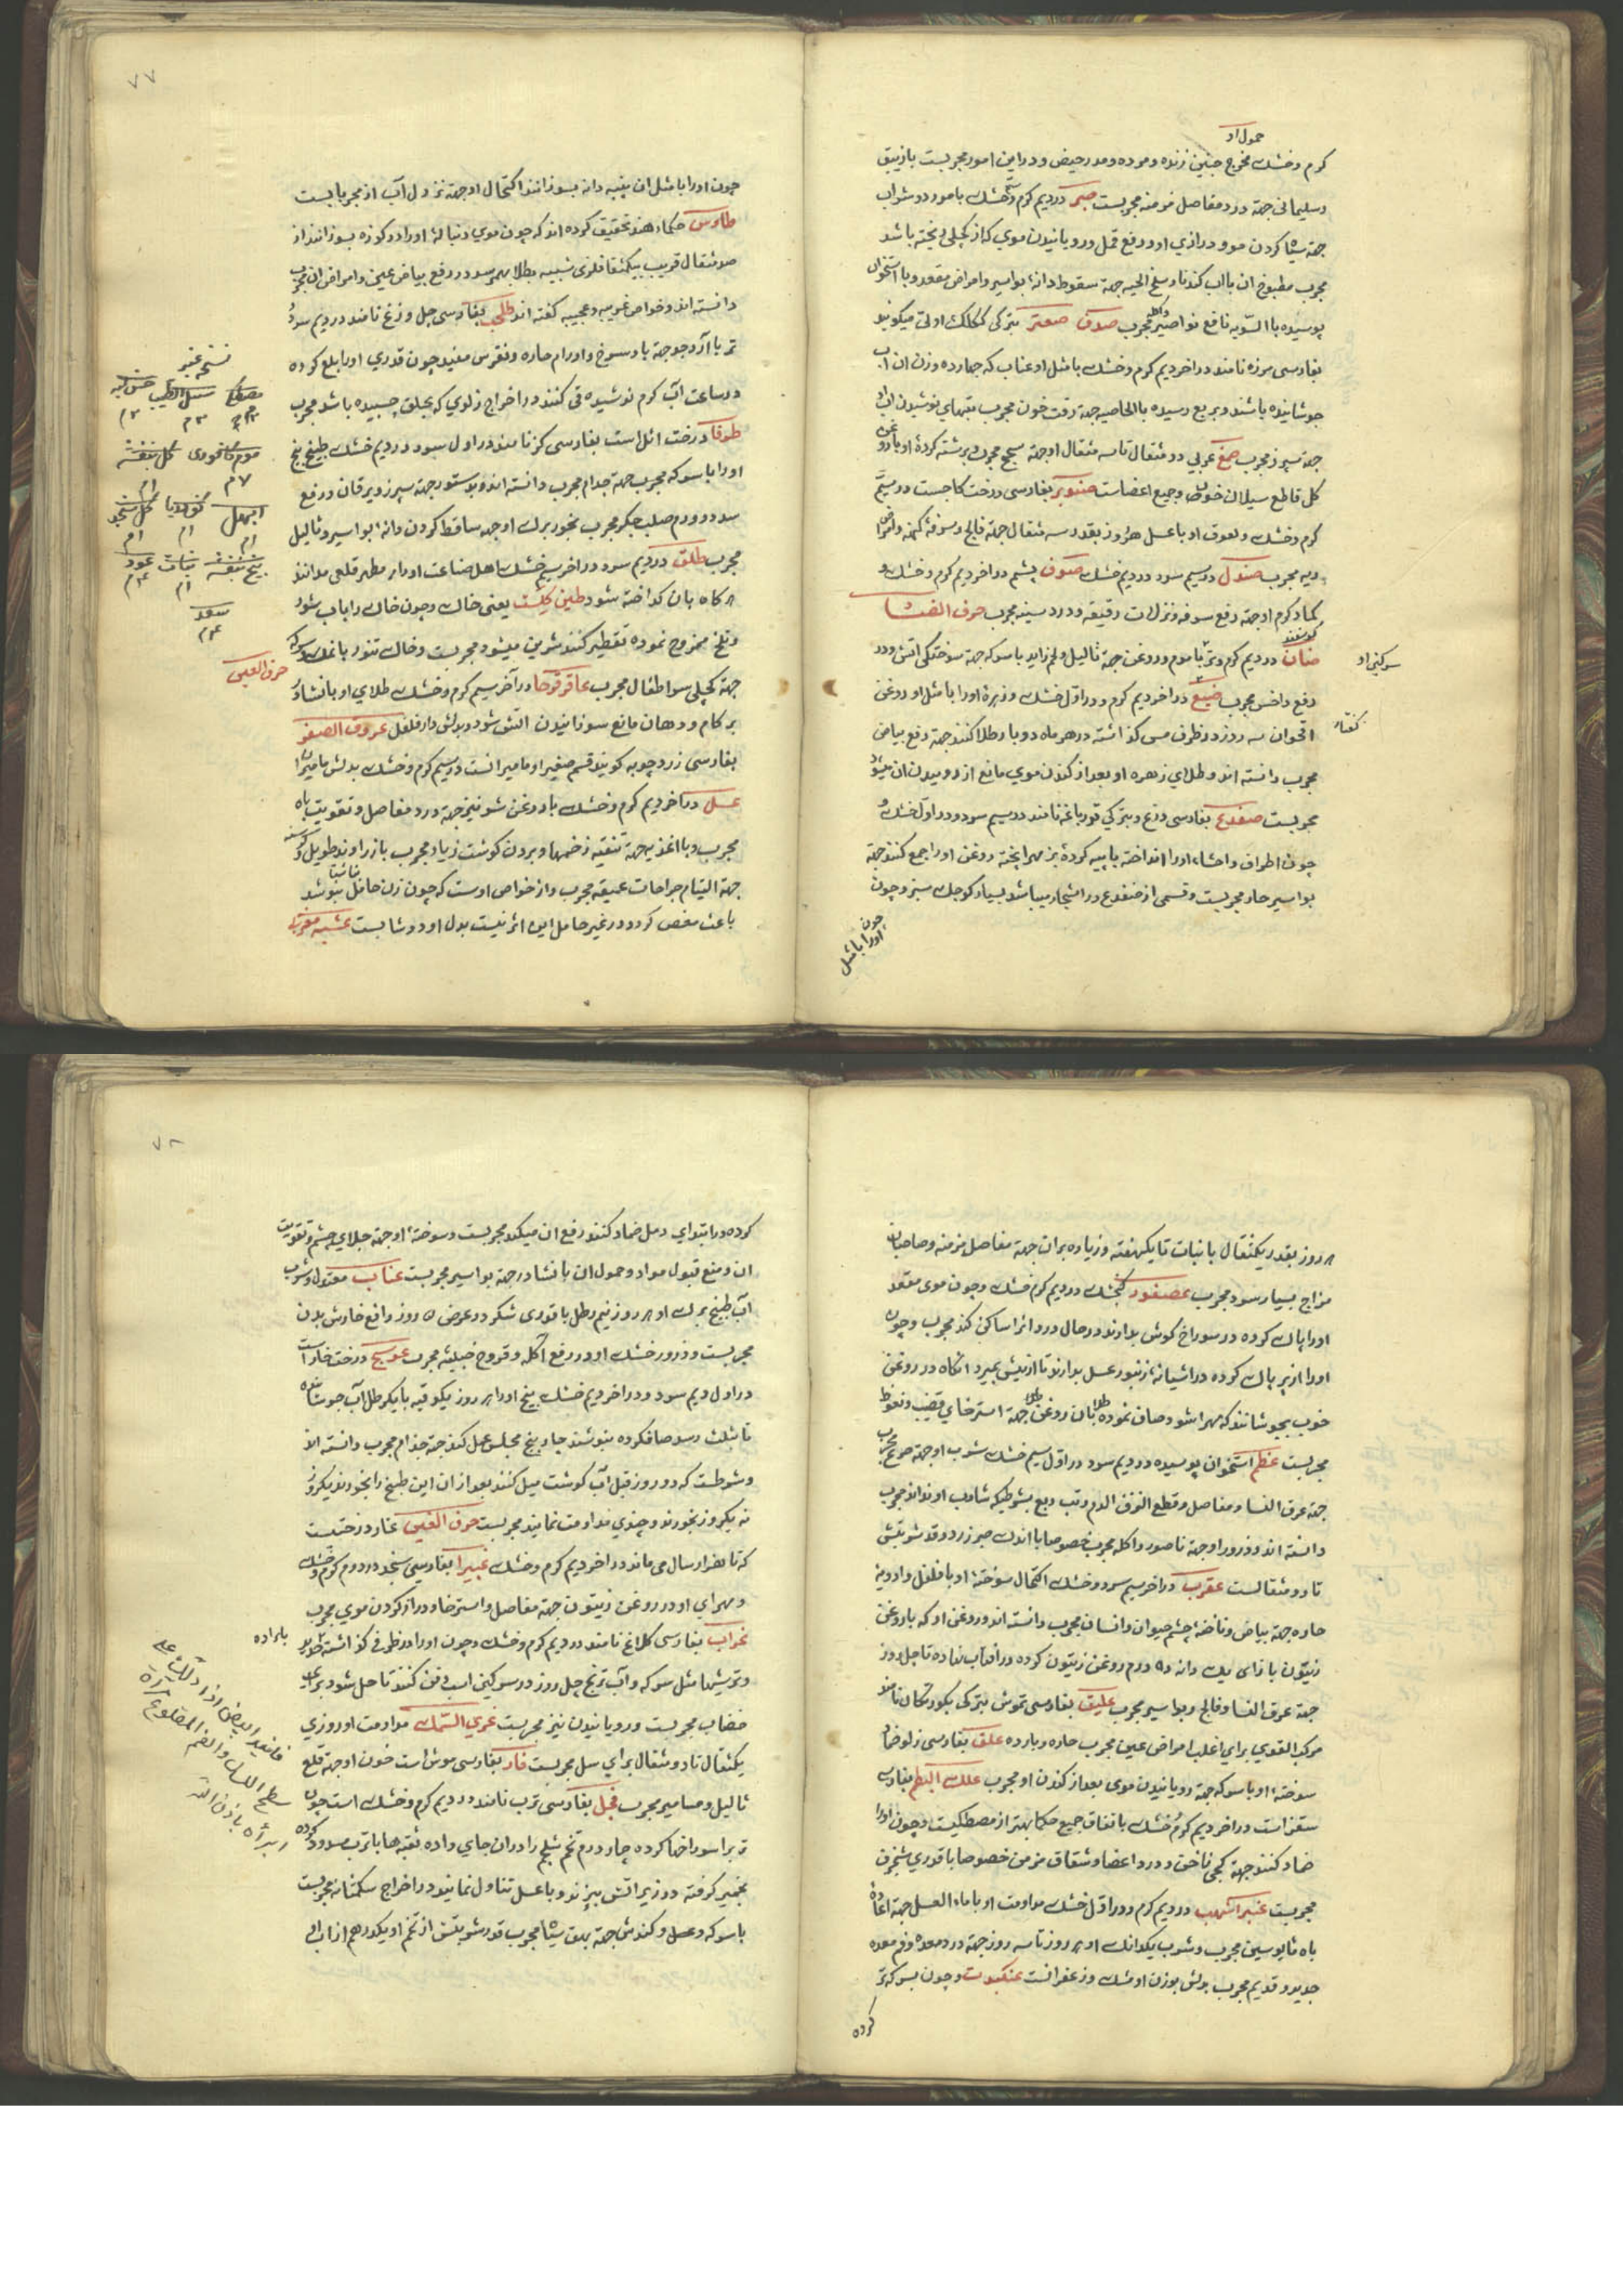 حمول او
کرم و خشک مخرج جنین زنده و مرده و مدر حیض و در این امور مجربست بازیبق
و سلیمانی جهة درد مفاصل مزمنه مجربست صبر در دیم کرم و خشک با مورد و شراب
جهة سیاه کردن مو و درازی او و رفع قمل و رویانیدن موی که از کچلی ریخته باشد
مجرب مطبوخ ان با اب کندنا و سلخ الحیه جهة سقوط دانهٔ بواسیر و امراض مقعد و با استخوان
پوسیده بالسویه نافع نواصیر مجرب صدف صعتر بترکی ککلک اوتی میکویند
بفارسی مرزه نامند در اخر دیم کرم و خشک با مثل او عناب که چهارده وزن ان آب
جوشانیده باشند و بربع رسیده بالخاصیه جهة رقت خون مجرب
جهة سپرز مجرب صمغ عربی دو مثقال تا سه مثقال او جهة سحج مجرب و برشته کردهٔ او با روغن
کل قاطع سیلان خون و جمیع اعضاست صنوبر بفارسی درخت کاجست در سیم
کرم و خشک و لعوق او با عسل هر روز بقدر سه مثقال جهة فالج و سرفهٔ کهنه و امراض
ریه مجرب صندل در سیم سرد و در دیم خشک صوف پشم در اخر دیم کرم و خشک و
کماد کرم او جهة رفع سرفه و نزلات رقیقه و درد سینه مجرب حرف الضاد
ضان کوسفند در دیم کرم و تر با موم و روغن جهة ثالیل و لحم زاید با سرکه جهة سوختکی آتش و در
سرکین او
دفع داخس مجرب ضبع در اخر دیم کرم و در اول خشک و زهرهٔ او را با مثل او روغن
کفتار
اقحوان سه روز در ظرف مس کذاشته در هر ماه دو بار طلا کنند جهة رفع بیاض
مجرب دانسته اند و طلای زهره او بعد از کندن موی مانع از روییدن ان میشود
مجربست ضفدع بفارسی وزغ و بترکی قورباغه نامند در سیم سرد و در اول خشک و
چون اطراف و احشاء او را انداخته با پیه کردهٔ بز مهرا پخته روغن او را جمع کنند جهة
بواسیر حار مجربست و قسمی از ضفدع در اشجار میباشد بسیار کوچک سبز و چون
چون او را با مثل
٧٧
چون او را با مثل ان پنبه دانه بسوزانند اکتحال او جهة نزول آب از مجرباتست
طاوس حکماء هند تحقیق کرده اند که چون موی دنبالهٔ او را در کوزه بسوزانند از
صد مثقال قریب بیکمثقال فلزی شبیه بطلا بهم رسد و در رفع بیاض عین و امراض ان مجرب
دانسته اند و خواص غریبه و عجیبه کفته اند طحلب بفارسی جل وزغ نامند در دیم سرد و
تر با آرد جو جهة باد سرخ و اورام حاره و نقرس مفید چون قدری او را بلع کرده
در ساعت آب کرم نوشیده قی کنند در اخراج زلوی که بحلق چسبیده باشد مجرب
طرفا درخت اثل است بفارسی کز نامند در اول سرد و در دیم خشک طبیخ بیخ
او را با سرکه مجرب جهة جذام مجرب دانسته اند و بدستور جهة سپرز و یرقان و رفع
سدد و ورم صلب جکر مجرب بخور برک او جهة ساقط کردن دانهٔ بواسیر و ثالیل
مجرب طلق در دیم سرد و در اخر سیم خشک اهل صناعت او را مطهر قلعی میدانند
هر کاه بان کداخته شود طین کلشت یعنی خاک و چون خاک را با آب شور
و تلخ ممزوج نموده تقطیر کنند شیرین میشود و مجربست و خاک تنور با نمک و سرکه
جهة کچلی سر اطفال مجرب عاقرقرحا در آخر سیم کرم و خشک طلای او با نشادر
حرف العین
بر کام و دهان مانع سوزانیدن اتش شود و بدلش دارفلفل عروق الصفر
بفارسی زرد چوبه کویند قسم صغیر او مامیرانست در سیم کرم و خشک بدلش مامیران
عسل در آخر دیم کرم و خشک با روغن شونیز جهة درد مفاصل و تقویت باه
مجرب و با اغذیه جهة تنقیه زخمها و بردن کوشت زیاد مجرب با زراوند طویل و کرسنه
جهة التیام جراحات عمیقه مجرب و از خواص اوست که چون زن حامل بنوشد
باعث مغص کردد و در غیر حامل این اثر نیست بدل او دوشابست عشبه مغربی
نسخه عنبر
سنبل الطیب
موم کافوری کل بنفشه
٧م ام
ابهل
ام ام ام
بیخ بنفشه نبات عود
ام
سعد
هر روز بقدر یکمثقال با نبات تا یکهفته و زیاده بران جهة مفاصل مزمنه و صاحبان
مزاج بسیار سرد مجرب عصفور کنجشک در دیم کرم خشک و چون موی مقعد
او را پاک کرده در سوراخ کوش بدارند در حال درد انرا ساکن کند مجرب و چون
او را از پر پاک کرده در اشیانهٔ زنبور عسل بدارند تا از نیش بمیرد انکاه در روغن
خوب بجوشانند که مهرا شود صاف نموده طلا بان روغن جهة استرخای قضیب و نعوظ
مجربست عظم استخوان پوسیده در دیم سرد در اول سیم خشک شرب او جهة صرع مجرب
جهة عرق النسا و مفاصل و قطع النزف الدم و تب ربع بشرطیکه شارب او نداند مجرب
دانسته اند و ذرور او جهة ناصور و اکله مجرب خصوصا با اندک صبر زرد و قدر شربتش
تا دو مثقالست عقرب در اخر سیم سرد و خشک اکتحال سوختهٔ او با فلفل و ادویهٔ
حاره جهة بیاض و ناخنهٔ چشم حیوان و انسان مجرب دانسته اند و روغن او که با روغن
زیتون بازای یک دانه ده درم روغن زیتون کرده در افتاب نهاده تا چل روز
جهة عرق النسا و فالج و بواسیر مجرب علیق بفارسی تموش بترکی بکورتکان نامند
مرکب القوی برای اغلب امراض عین مجرب حاره و بارده علق بفارسی زلو ضماد
سوختهٔ او با سرکه جهة رویانیدن موی بعد از کندن او مجرب علک البطم بفارسی
سقز است در اخر دیم کرم و خشک باتفاق جمیع حکما بهتر از مصطکیست و چون او را
ضماد کنند جهة کجی ناخن و درد اعضا و شقاق مزمن خصوصا با قدری شنجرف
مجربست عنبر اشهب در دیم کرم و در اول خشک مداومت او با ماء العسل جهة اعادهٔ
باه مایوسین مجرب و شرب یکدانک او هر روز تا سه روز جهة درد معده و فم معده
جدید و قدیم مجرب بدلش بوزن او مشک و زعفرانست عنکبوت و چون بسرکه تر
کرده
٧٨
کرده در ابتدای دمل ضماد کنند رفع ان میکند مجربست و سوختهٔ او جهة جلای چشم و تقویت
ان و منع قبول مواد و حمول ان با نشادر جهة بواسیر مجربست عناب معتدل و شرب
آب طبیخ برک او هر روز نیم رطل با قدری شکر در عرض ٥ روز رافع خارش بدن
مجربست و ذرور خشک او در رفع اکله و قروح خبیثه مجرب عوسج درخت خار است
در اول دیم سرد و در اخر دیم خشک بیخ او را هر روز یکوقیه با یکرطل آب جوشانیده
تا بثلث رسد صاف کرده بنوشند چهار پنج مجلس عمل کند جهة جذام مجرب دانسته اند
و شرطست که دو روز قبل آب کوشت میل کنند بعد از ان این طبیخ را بخورند یکروز
نه یکروز بخورند و چندی مداومت نمایند مجربست حرف الغین غار درختیست
که تا هزار سال می ماند در اخر دیم کرم و خشک غبیرا بفارسی سنجد در دوم کرم و خشک
و مهرای او در روغن زیتون جهة مفاصل و استرخا و دراز کردن موی مجرب
غراب بفارسی کلاغ نامند در دیم کرم و خشک و چون او را در ظرفی کذاشته
با براده
و ترشیها مثل سرکه و آب ترنج چل روز در سرکین اسب دفن کنند تا حل شود برای
خضاب مجربست و رویانیدن نیز مجربست غری السمک مداومت او روزی
یکمثقال تا دو مثقال برای سل مجربست فار بفارسی موش است خون او جهة قلع
ثالیل و مسامیر مجرب فجل بفارسی ترب نامند در دیم کرم و خشک است چون
تربرا سوراخها کرده چهار درم تخم شلجم را در ان جای داده ثقبه ها با ترب مسدود کرده
بخمیر کرفته در زیر اتش بپزند و با عسل تناول نمایند در اخراج سنک مثانه مجربست
با سرکه و عسل و کندش جهة بهق سیاه مجرب قدر شربتش از تخم او یکدرهم از اب او